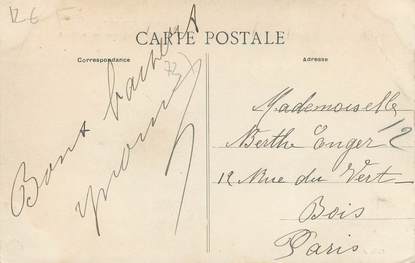 12 €
CARTE POSTALE
Correspondance
Adresse
73
Bons baisers
Yvonne
Mademoiselle
Berthe Enger
12 Rue du Vert-
Bois
Paris